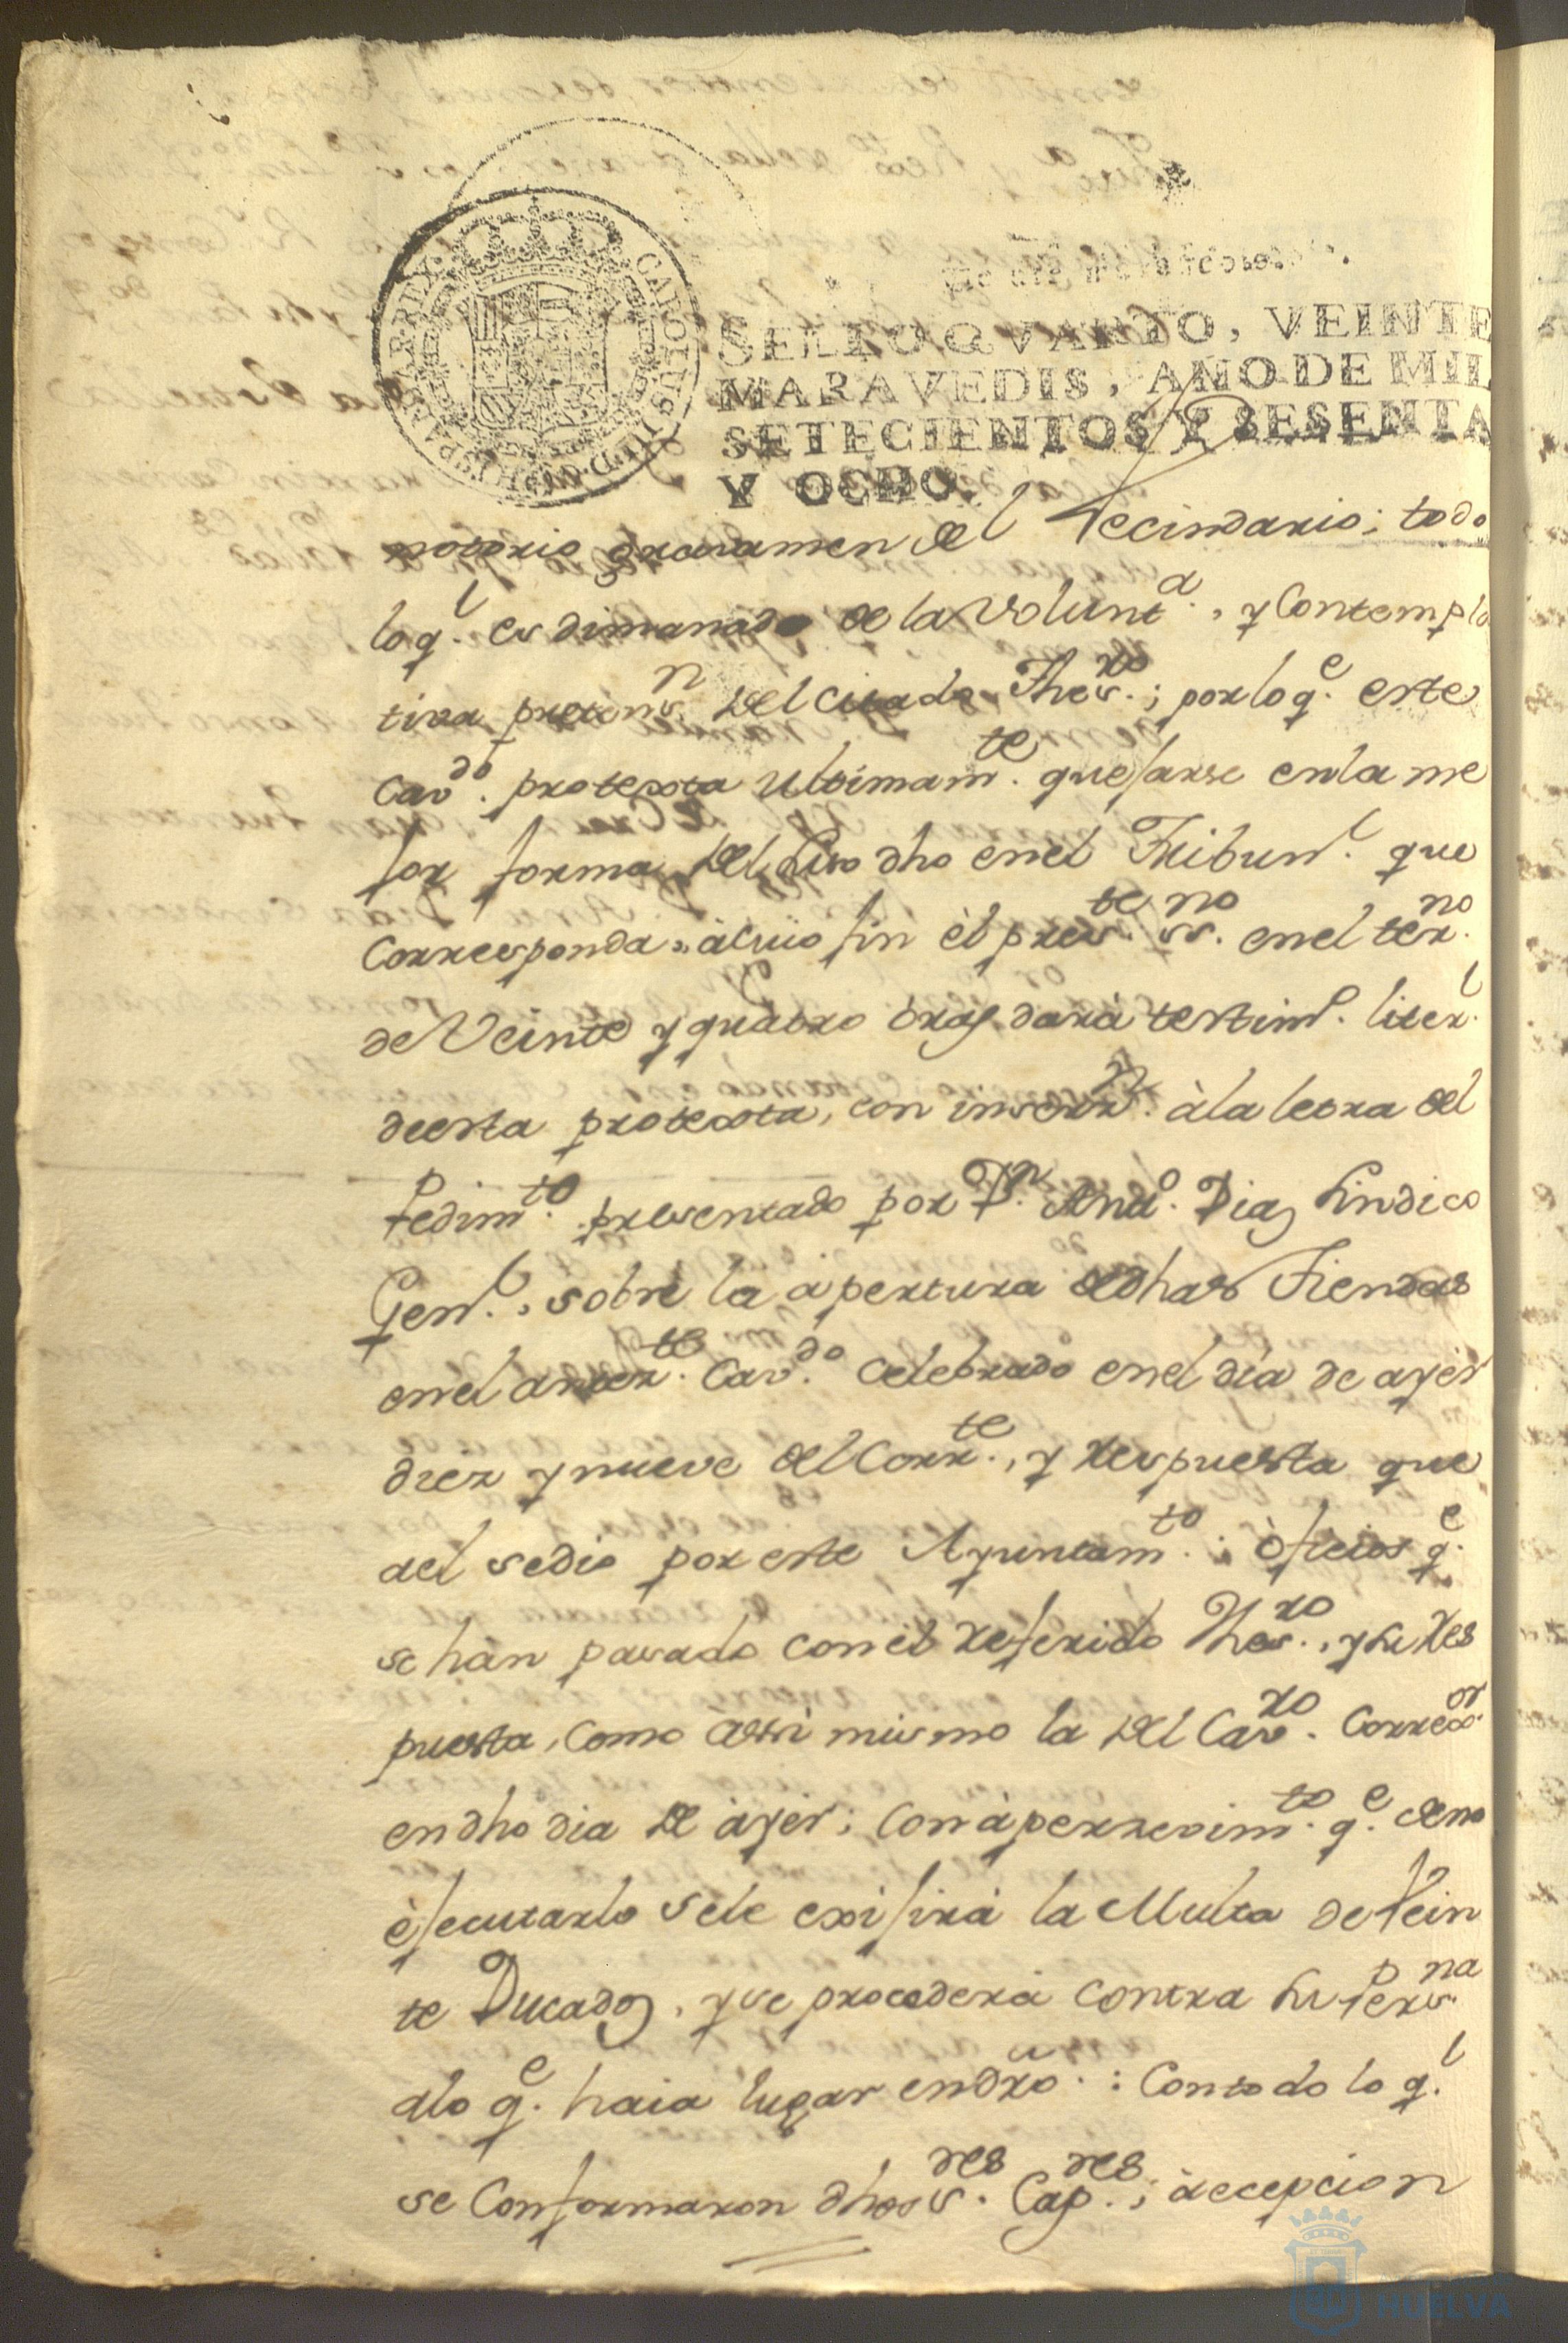 CAROLUS III D G HISPANIAR REX
SELLO QVARTO, VEINTE
MARAVEDIS, AÑO DE MIL
SETECIENTOS Y SESENTA
Y OCHO.
notorio gravamen del Vecindario; todo
lo q.l es dimanado de la Volunt.d, y Contempla
tiva pretens.n del citado Thes.ro; por lo q.e este
Cav.do protexta Ultimam.te quejarse en la me
jor forma del Caso dho en el Tribun.l que
corresponda: à cuio fin èl pres.te ss.no en el tér.no
de Veinte y quatro oras dará testim.o liter.l
de esta protexta, con inserz.n à la letra del
Pedim.to presentado por D.n And.o Diaz Sindico
Gen.l, sobre la apertura de dhas Tiendas
en el anter.te Cav.do celebrado en el dia de ayér
diez y nueve del Corr.te, y respuesta que
ael se dio por este Ayuntam.to: òficios q.e
se hàn pasado con èl referido Thes.ro, y su res
puesta, como àssi mismo la del Cav.ro Correx.or
en dho dia de àyér; con àperzevim.to q.e de no
èjecutarlo se le exijirá la Multa de Vein
te Ducados, y se procederá contra su Pers.na
alo q.e haia lugar en dró.: Con todo lo q.l
se Conformaron dhos s.res Cap.res; àecepcion
HUELVA